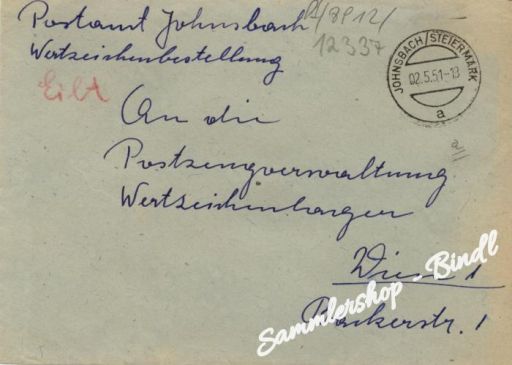 Postamt Johnsbach
Wertzeichenbestellung
12337
Eilt
JOHNSBACH/STEIERMARK
02.5.51-13
a
An die
Postzeugverwaltung
Wertzeichenlager
Wien 1
Postgasse
Sammlershop - Bindl